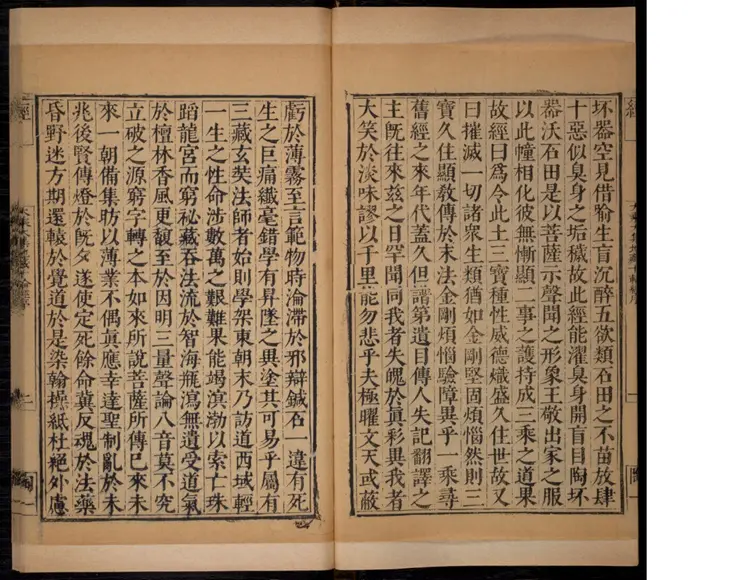 坏器空見借喻生盲沉醉五欲類石田之不苗放肆
十惡似臭身之垢穢故此經能濯臭身開盲目陶坏
器沃石田是以菩薩示聲聞之形象王敬出家之服
以此幢相化彼無慚顯二事之護持成三乘之道果
故經曰爲令此土三寶種性威德熾盛久住世故又
曰摧滅一切諸衆生類猶如金剛堅固煩惱然則三
寶久住顯敎傳於末法金剛煩惱驗障異乎一乘尋
舊經之來年代蓋久但譜第遺目傳人失記翻譯之
主旣往來玆之日罕聞同我者失魄於眞彩異我者
大笑於淡味謬以千里能勿悲乎夫極曜文天或蔽
虧於薄霧至言範物時淪滯於邪辯鍼石一違有死
生之巨痛纖毫錯學有昇墜之異塗其可易乎屬有
三藏玄奘法師者始則學架東朝末乃訪道西域輕
一生之性命涉數萬之艱難果能竭溟渤以索亡珠
蹈龍宮而窮祕藏吞法流於智海甁瀉無遺受道氣
於檀林香風更馥至於因明三量聲論八音莫不究
立破之源窮字轉之本如來所說菩薩所傳已來未
來一朝備集昉以薄業不偶眞應幸達聖制亂於未
兆後賢傳燈於旣夕遂使定死餘命冀反魂於法藥
昏野迷方期還轅於覺道於是染翰操紙杜絕外慮